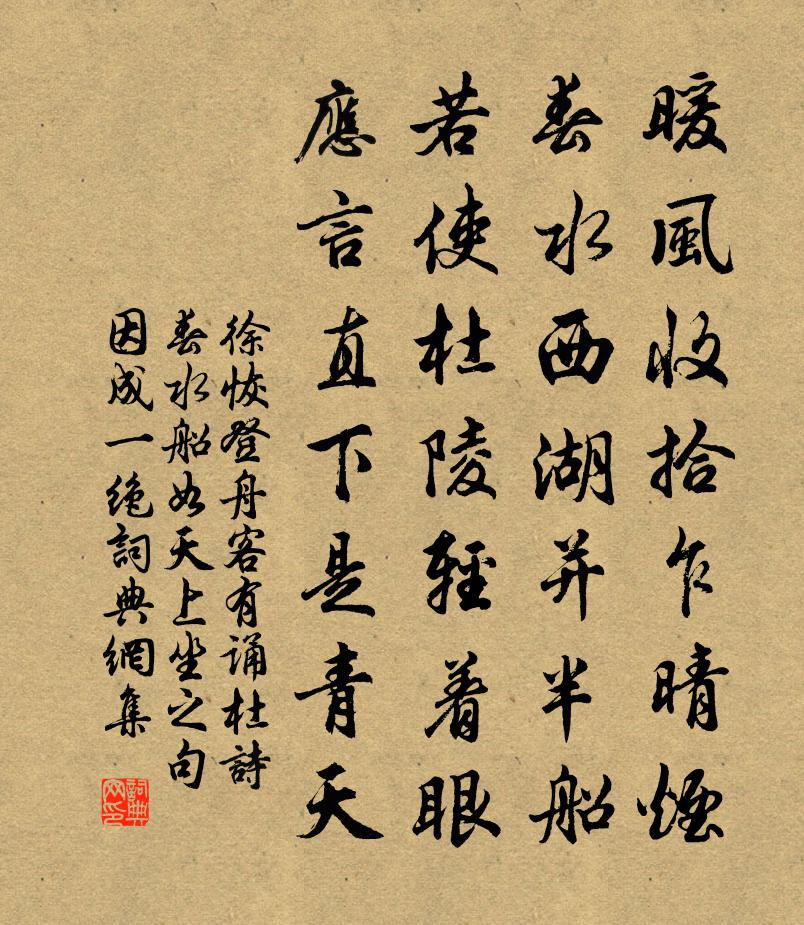 暖風收拾乍晴煙
春水西湖并半船
若使杜陵輕着眼
應言直下是青天
徐恢登舟客有誦杜詩
春水船如天上坐之句
因成一絶詞典網集
詞典网印